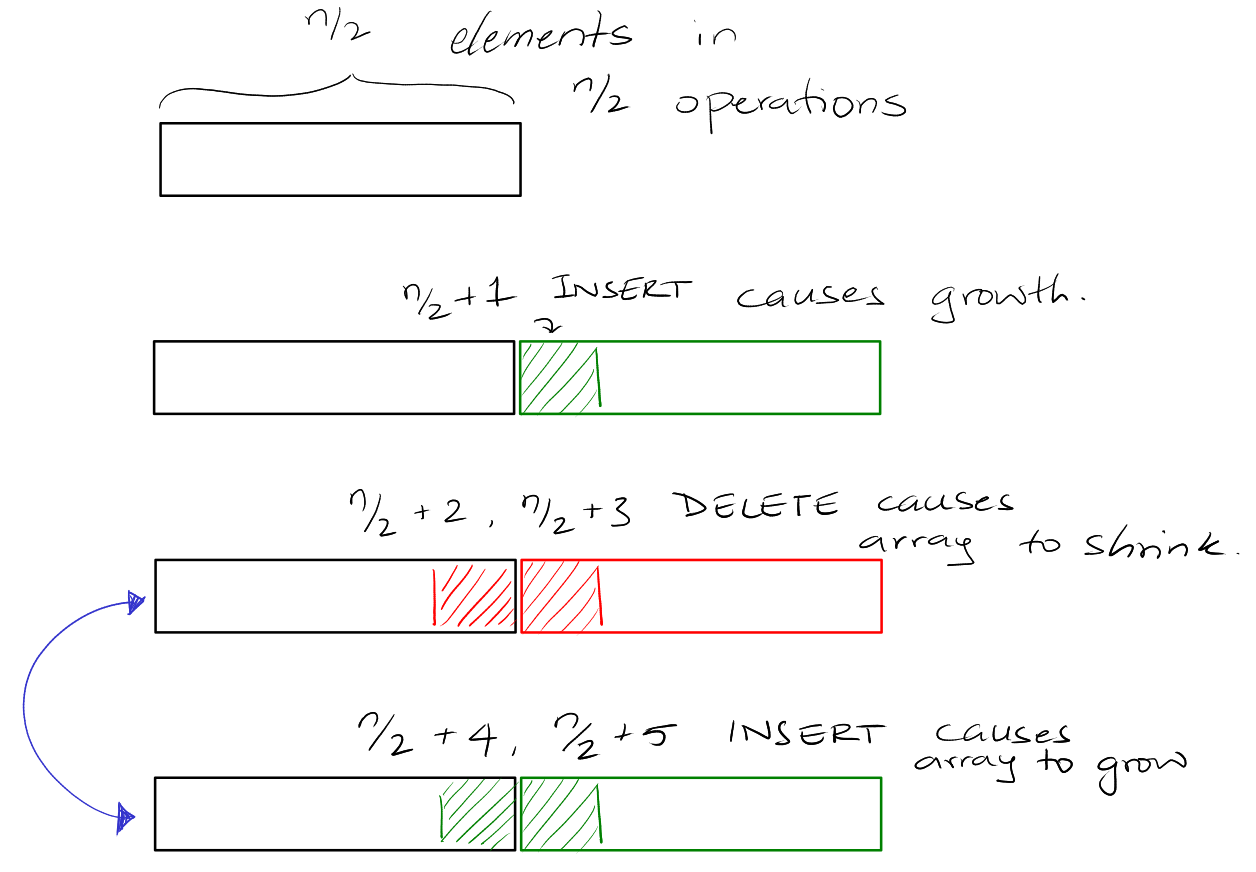 n/2 elements in
n/2 operations
n/2 + 1 INSERT causes growth.
n/2 + 2, n/2 + 3 DELETE causes
array to shrink.
n/2 + 4, n/2 + 5 INSERT causes
array to grow